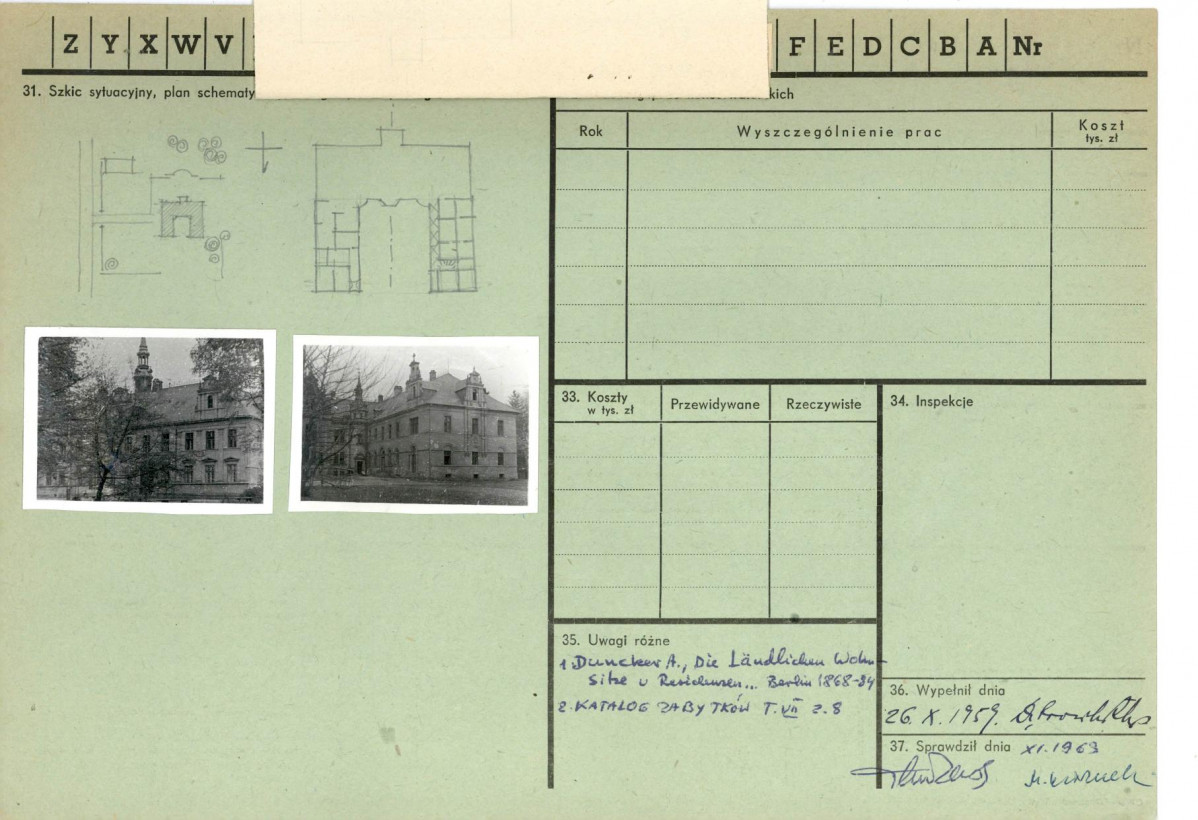 Z Y X W V
F E D C B A Nr
31. Szkic sytuacyjny, plan schematy
kich
Rok
Wyszczególnienie prac
Koszt
tys. zł
33. Koszty
w tys. zł
Przewidywane
Rzeczywiste
34. Inspekcje
35. Uwagi różne
1. Duncker A., Die Ländlichen Wohn-
sitze u Residenzen... Berlin 1868-84
2. KATALOG ZABYTKÓW T. VII z. 8
36. Wypełnił dnia
26. X. 1959.
37. Sprawdził dnia XI. 1963